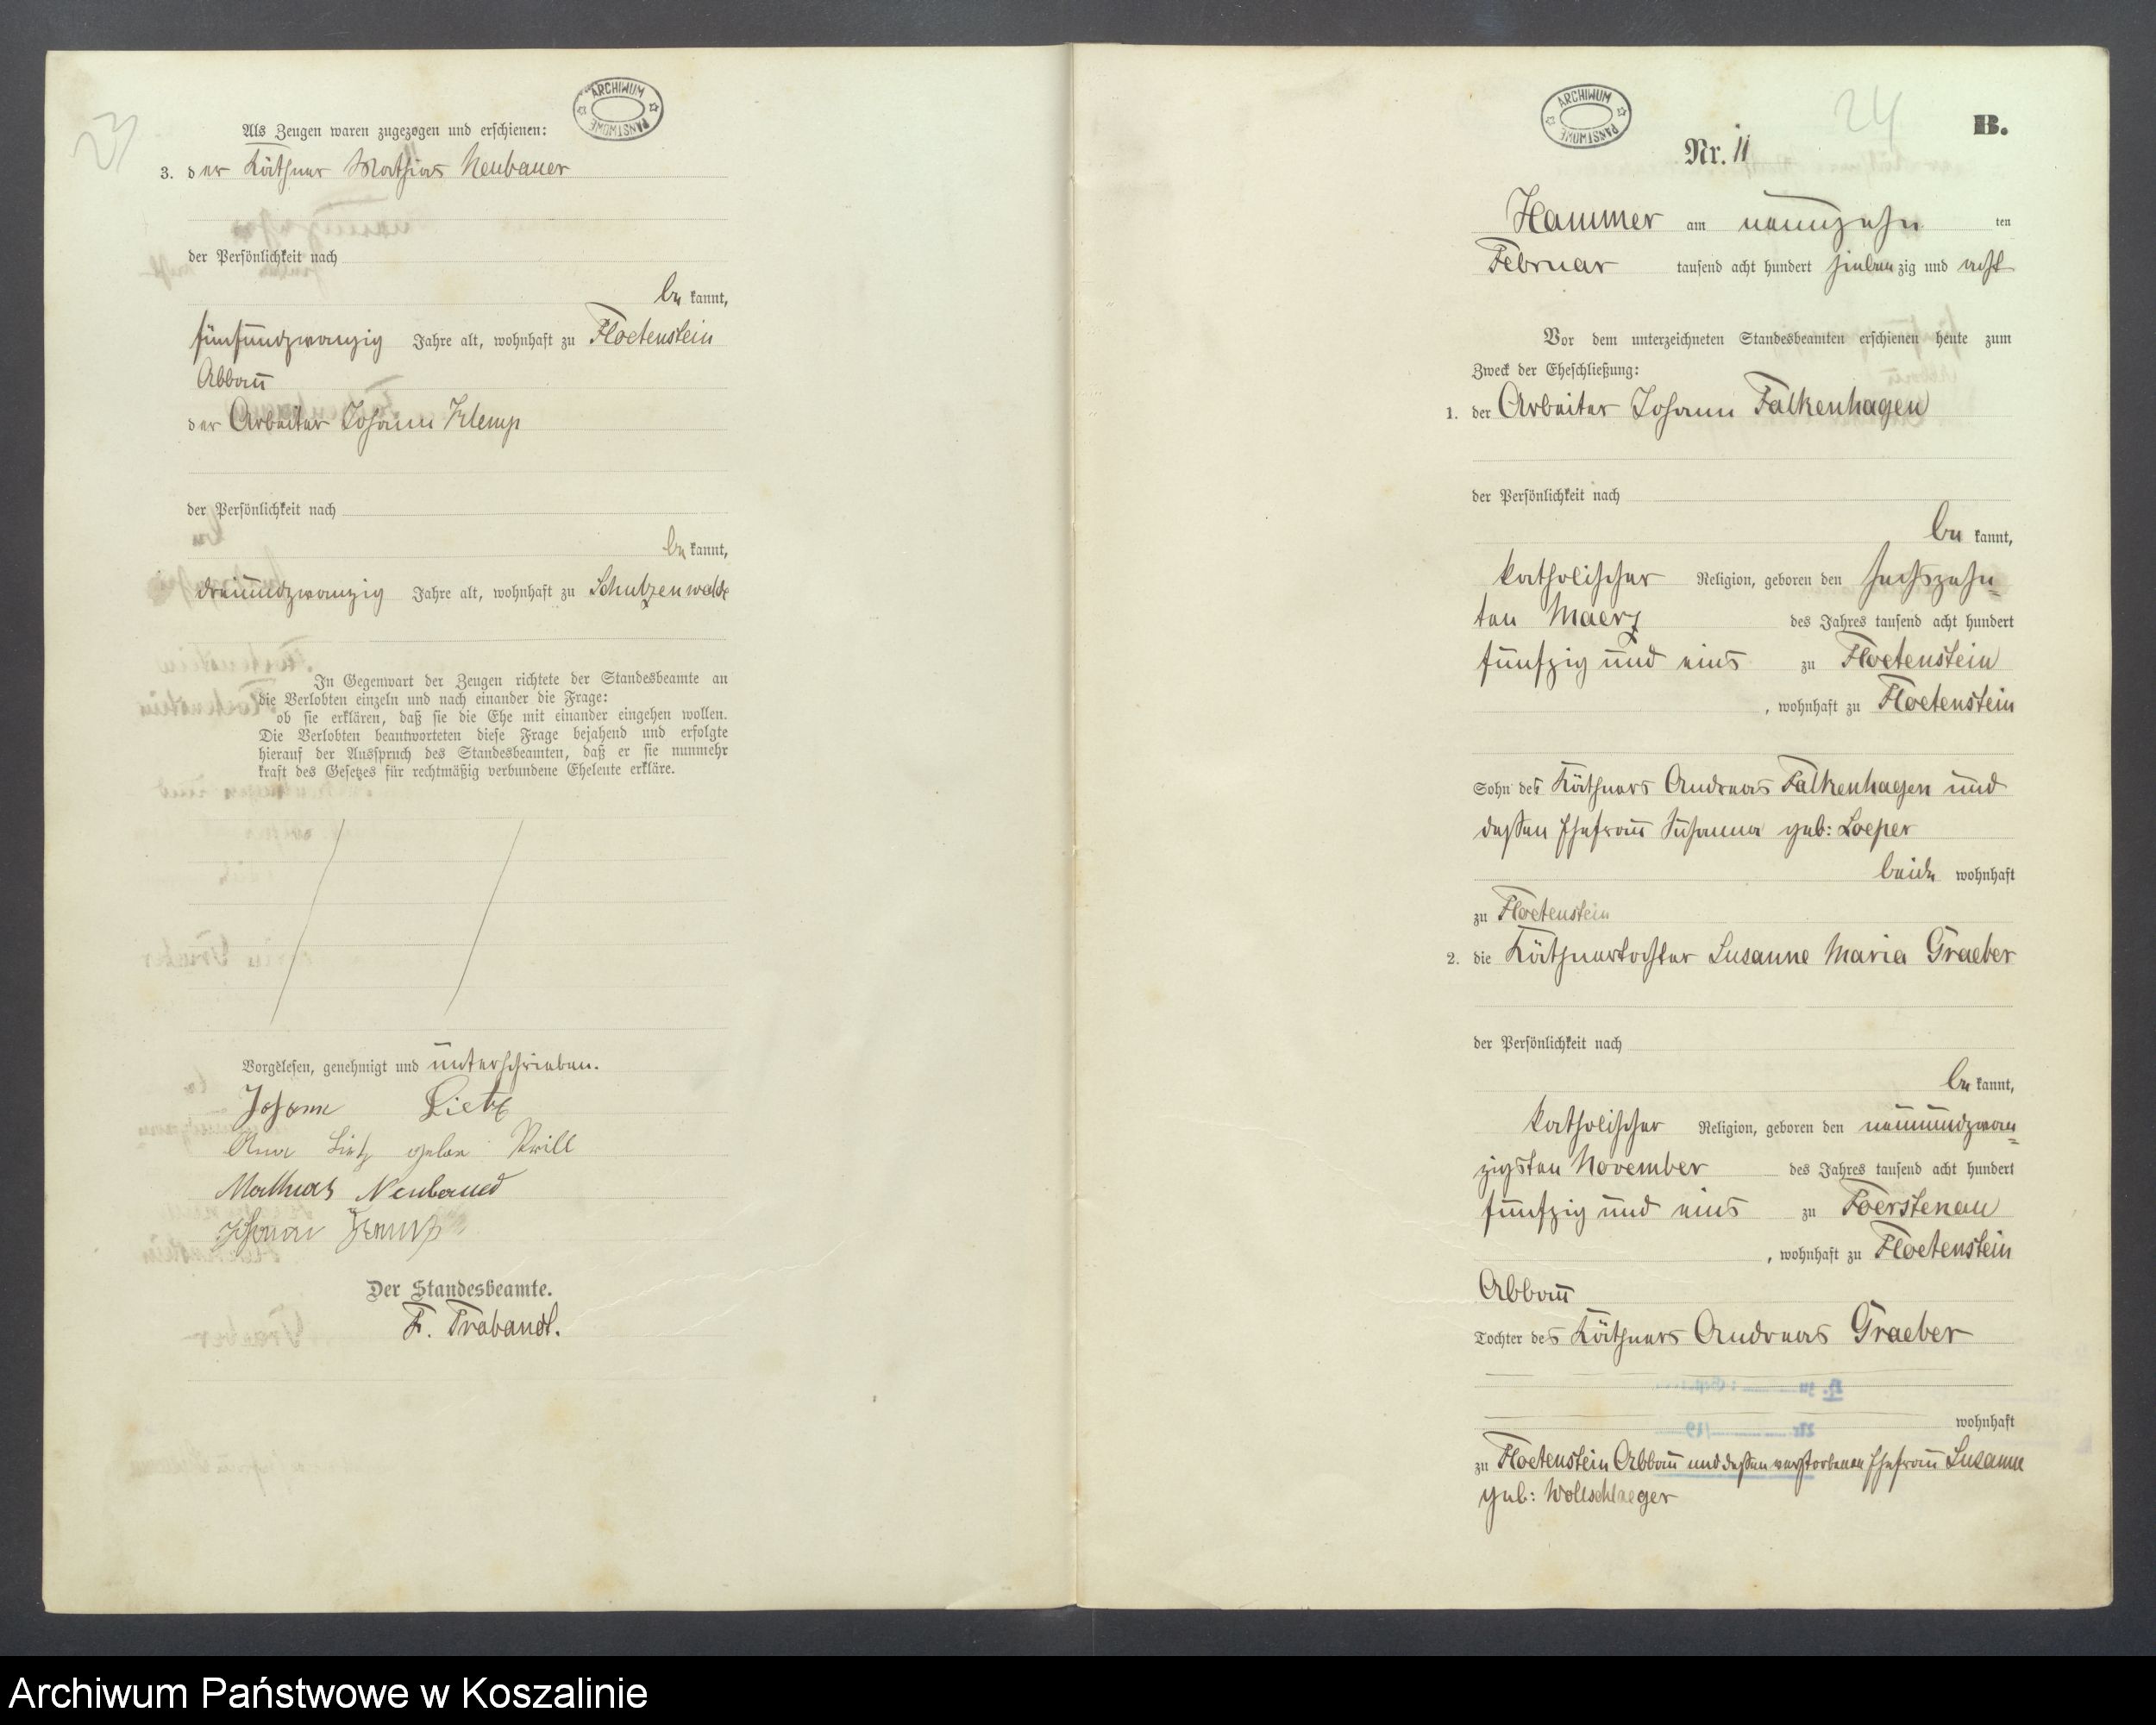 23
ARCHIWUM PAŃSTWOWE
Als Zeugen waren zugezogen und erschienen:
3. der Käthner Mathias Neubauer
der Persönlichkeit nach
be kannt,
fünfundzwanzig Jahre alt, wohnhaft zu Floetenstein
Abbau
der Arbeiter Johann Klemp
der Persönlichkeit nach
be kannt,
dreiundzwanzig Jahre alt, wohnhaft zu Schutzenwalde
In Gegenwart der Zeugen richtete der Standesbeamte an
die Verlobten einzeln und nach einander die Frage:
ob sie erklären, daß sie die Ehe mit einander eingehen wollen.
Die Verlobten beantworteten diese Frage bejahend und erfolgte
hierauf der Ausspruch des Standesbeamten, daß er sie nunmehr
kraft des Gesetzes für rechtmäßig verbundene Eheleute erkläre.
Vorgelesen, genehmigt und unterschrieben.
Johann Lietz
Ana Lietz geboe Prill
Mathias Neubaued
Johann Klemp
Der Standesbeamte.
F. Trabandt.
ARCHIWUM PAŃSTWOWE
24
B.
Nr. 11
Hammer am neunzehn ten
Februar tausend acht hundert sieben zig und acht
Vor dem unterzeichneten Standesbeamten erschienen heute zum
Zweck der Eheschließung:
1. der Arbeiter Johann Falkenhagen
der Persönlichkeit nach
be kannt,
katholischer Religion, geboren den sechszehn=
ten Maerz des Jahres tausend acht hundert
fünfzig und eins zu Floetenstein
, wohnhaft zu Floetenstein
Sohn des Käthners Andreas Falkenhagen und
deßen Ehefrau Susanna geb: Loeper
beide wohnhaft
zu Floetenstein
2. die Käthnertochter Susanne Maria Graeber
der Persönlichkeit nach
be kannt,
katholischer Religion, geboren den neunundzwan=
zigsten November des Jahres tausend acht hundert
fünfzig und eins zu Foerstenau
, wohnhaft zu Floetenstein
Abbau
Tochter des Käthners Andreas Graeber
wohnhaft
zu Floetenstein Abbau und deßen verstorbenen Ehefrau Susanne
geb: Wollschlaeger
Archiwum Państwowe w Koszalinie